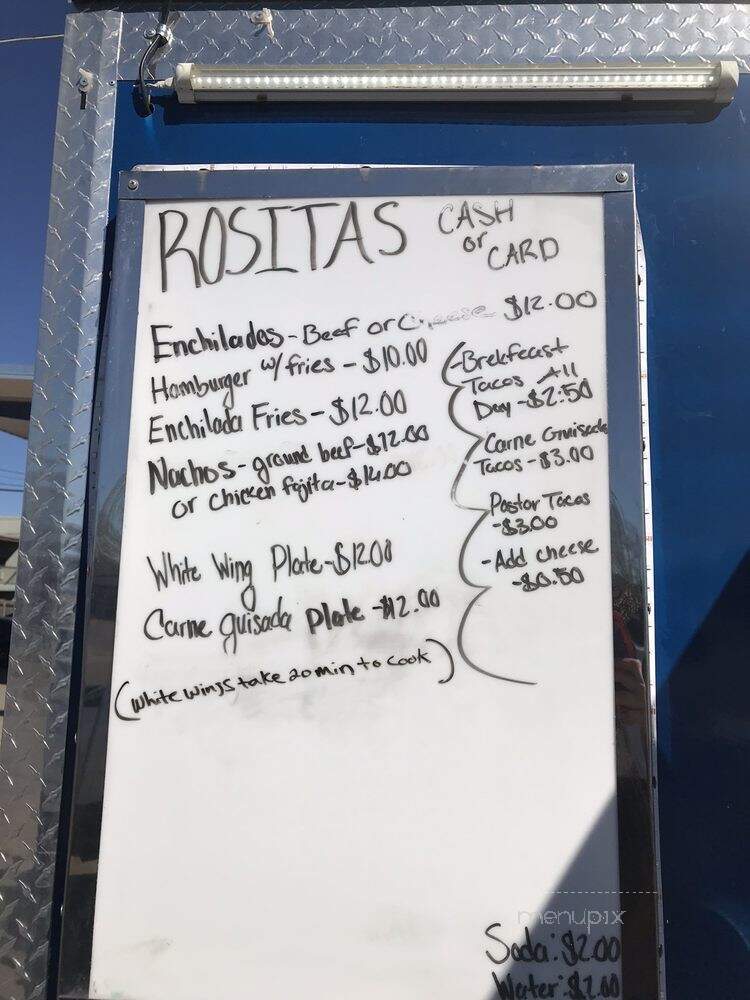 ROSITAS
CASH
or
CARD
Enchiladas - Beef or Cheese $12.00
Hamburger w/ fries - $10.00
Enchilada Fries - $12.00
Nachos - ground beef - $12.00
or chicken fajita - $14.00
White Wing Plate - $12.00
Carne guisada plate - $12.00
(White wings take 20 min to cook)
- Brekfeast
Tacos All
Day - $2.50
Carne Guisada
Tacos - $3.00
Pastor Tacos
- $3.00
- Add cheese
- $0.50
menupix
Soda: $2.00
Water: $2.00